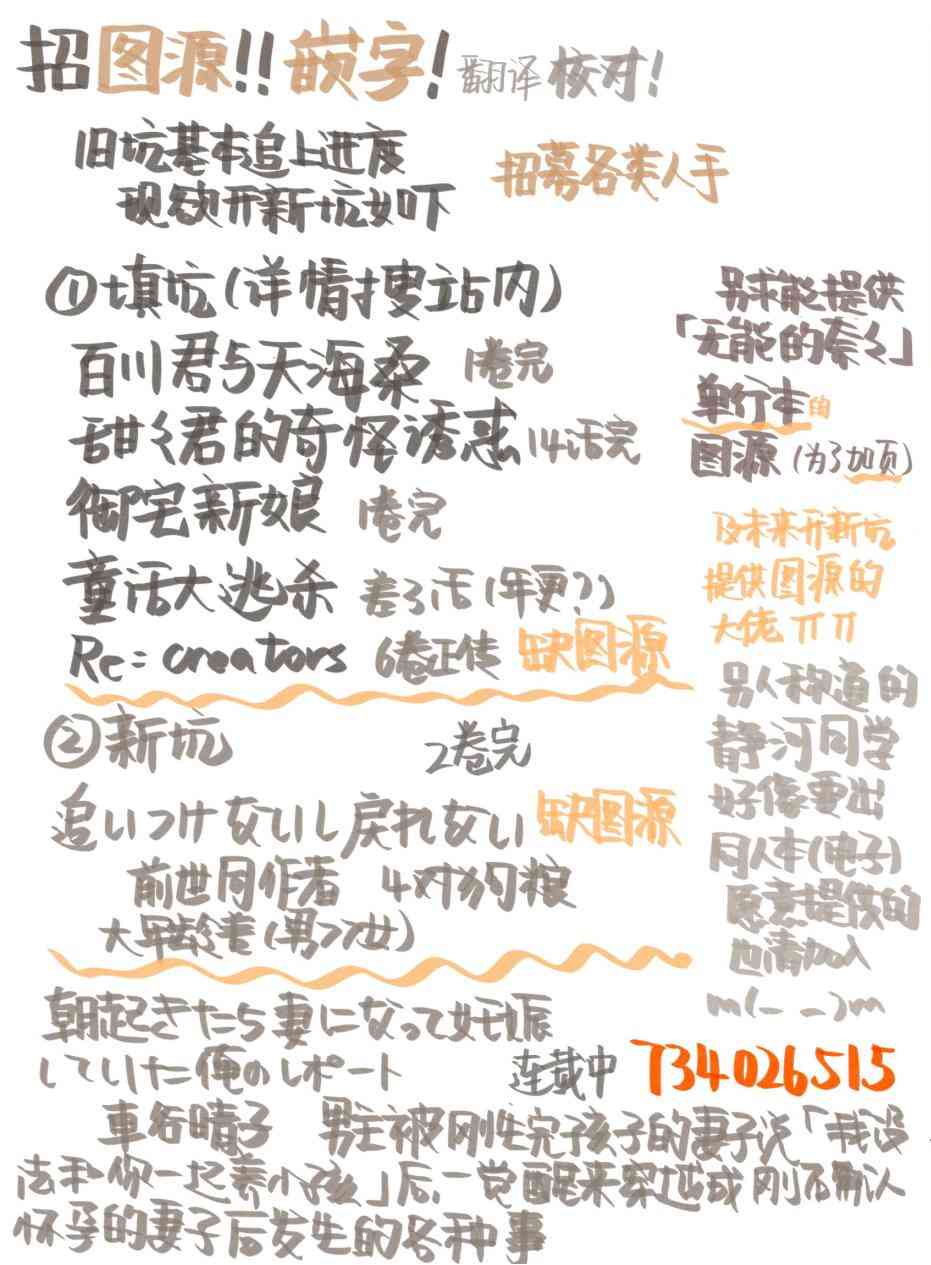 招图源!!嵌字!翻译校对!
旧坑基本追上进度
现欲开新坑如下
招募各类人手
①填坑(详情搜站内)
百川君与天海桑 1卷完
甜々君的奇怪诱惑 14话完
御宅新娘 1卷完
童话大逃杀 差3话(年更?)
Re:creators 6卷正传 缺图源
另求能提供
「无能的奈々」
单行本的
图源(为了加页)
及未来开新坑
提供图源的
大佬ππ
另人称道的
静河同学
好像要出
同人本(电子)
愿意提供的
也请加入
m(_ _)m
②新坑 2卷完
追いつけないし戻れない 缺图源
前世同作者 4对狗粮
大年龄差(男>女)
朝起きたら妻になって妊娠
していた俺のレポート 连载中 734026515
車谷晴子 男主被刚生完孩子的妻子说「我没
法和你一起养小孩」后,一觉醒来穿越成刚不确认
怀孕的妻子后发生的各种事